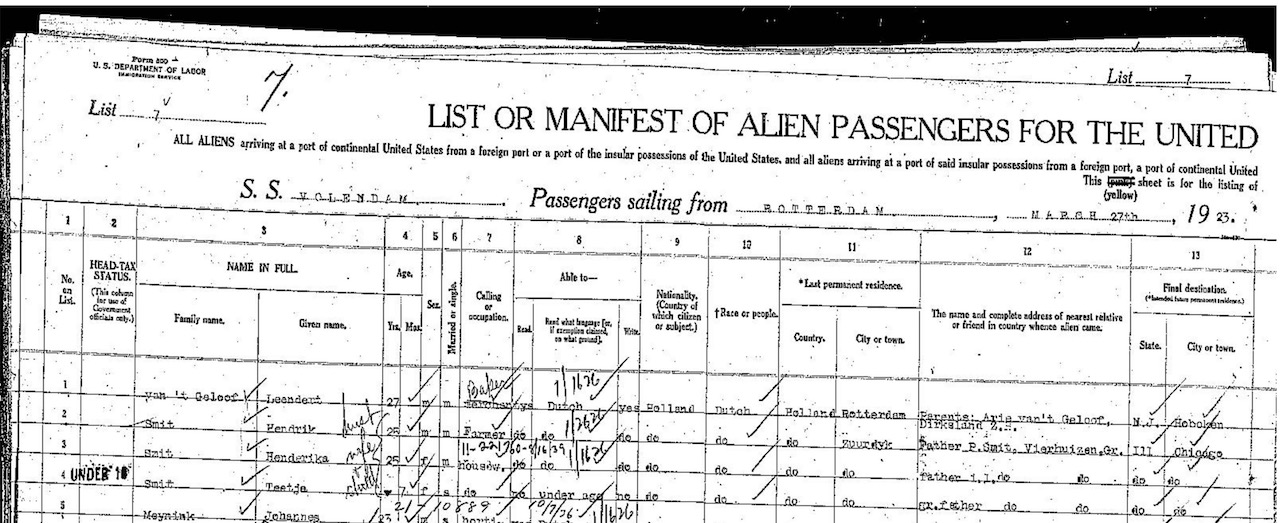 Form 500
U. S. DEPARTMENT OF LABOR
IMMIGRATION SERVICE
7.
List 7
List 7
LIST OR MANIFEST OF ALIEN PASSENGERS FOR THE UNITED
ALL ALIENS arriving at a port of continental United States from a foreign port or a port of the insular possessions of the United States, and all aliens arriving at a port of said insular possessions from a foreign port, a port of continental United
This sheet is for the listing of
(yellow)
S. S. VOLENDAM Passengers sailing from ROTTERDAM, MARCH 27th, 19 23.
1 2 3 4 5 6 7 8 9 10 11 12 13
No. on List.
HEAD-TAX STATUS.
(This column for use of Government officials only.)
NAME IN FULL.
Family name. Given name.
Age.
Yrs. Mos.
Sex.
Married or single.
Calling or occupation.
Able to—
Read. Read what language [or, if exemption claimed, on what ground]. Write.
Nationality. (Country of which citizen or subject.)
†Race or people.
*Last permanent residence.
Country. City or town.
The name and complete address of nearest relative or friend in country whence alien came.
Final destination.
(*Intended future permanent residence.)
State. City or town.
1 van 't Geloof Leendert 27 m m Baker yes Dutch yes Holland Dutch Holland Rotterdam Parents: Arie van't Geloof, Dirksland Z.H. N.J. Hoboken
2 Smit Hendrik 25 m m Farmer do do do do do do Zuurdyk Father P.Smit, Vierhuizen,Gr. Ill Chicago
3 Smit Henderika wife 25 f m housew. do do do do do do do father i.l.do do do do
4 UNDER 16 Smit Teetje 7 f s do no under age no do do do do gr.father do do do do
5 Meynink Johannes 23 m s